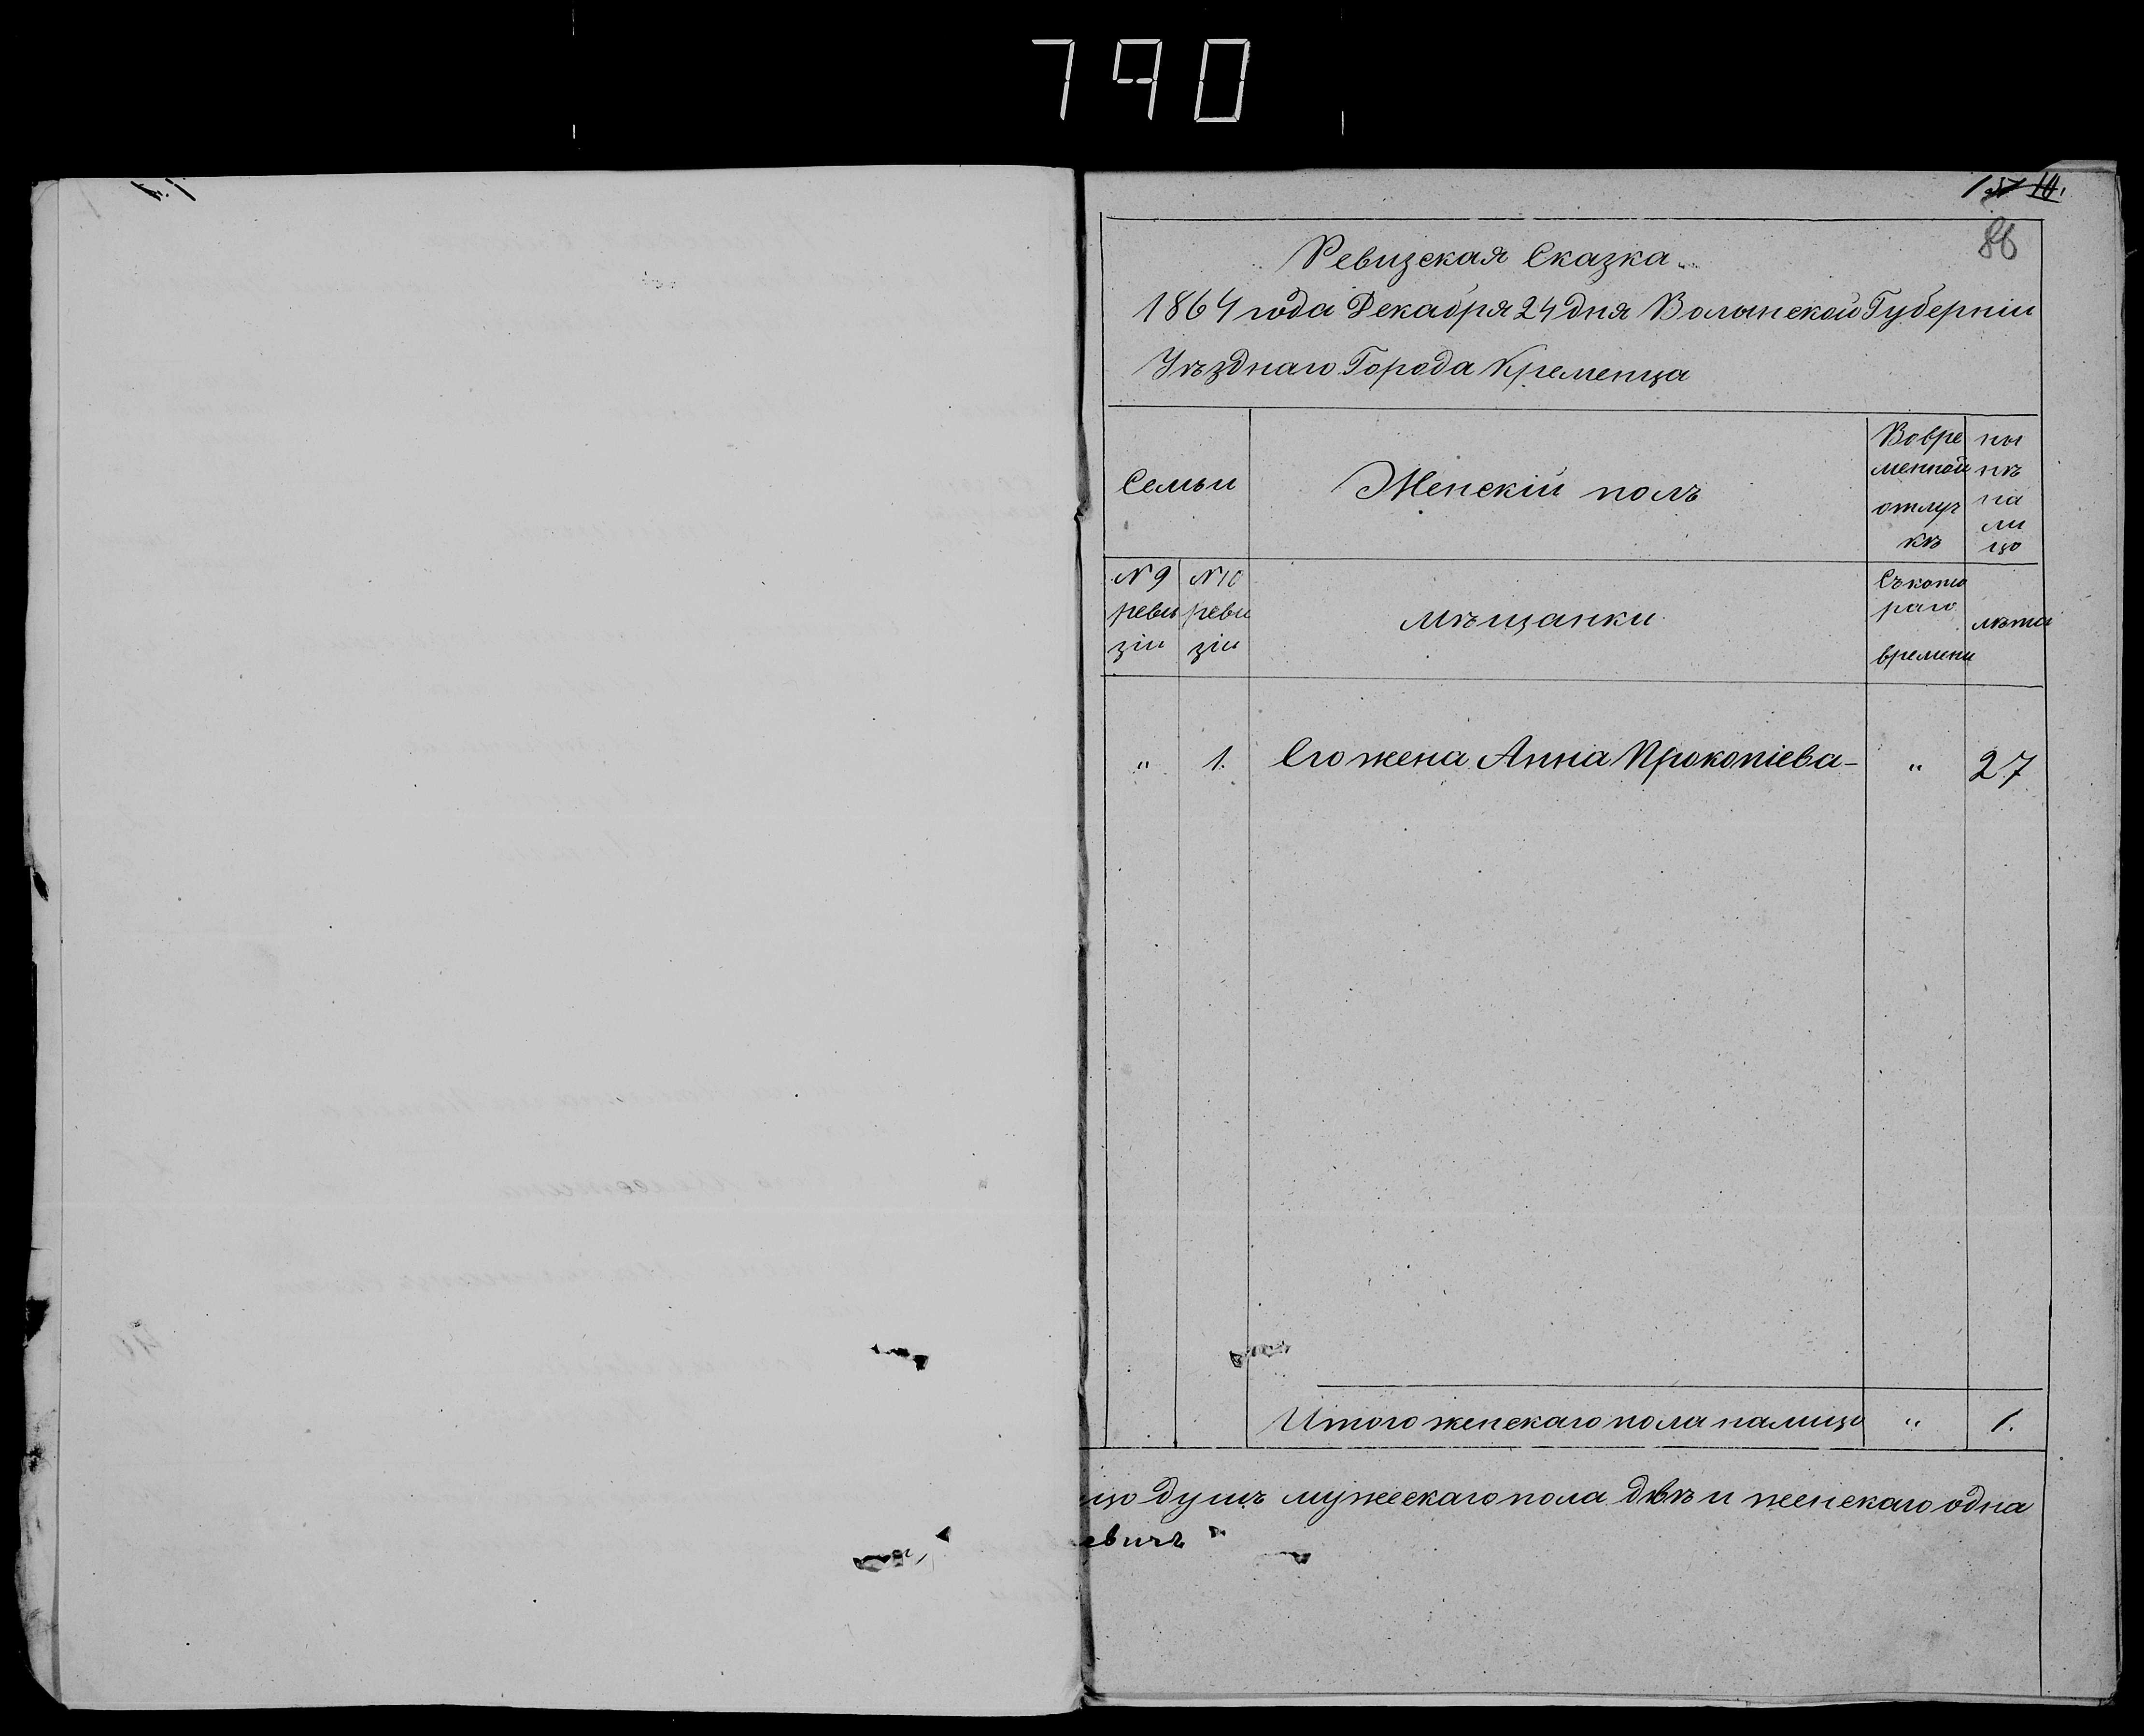 790
86
Ревизская Сказка
1864 года Декабря 24 дня Волынской Губерніи
Уѣзднаго Города Кременца
Семьи
Женскій полъ
Вовре
менной
отлуч
кѣ
ны
нѣ
на
ли
цо
№ 9
реви
зіи
№ 10
реви
зіи
мѣщанки
Съ кото
раго
времени
лѣта
" 1. Его жена Анна Прокопіева - " 27
Итого женскаго пола налицо " 1.
цо душъ мужескаго пола двѣ и женскаго одна
евичъ